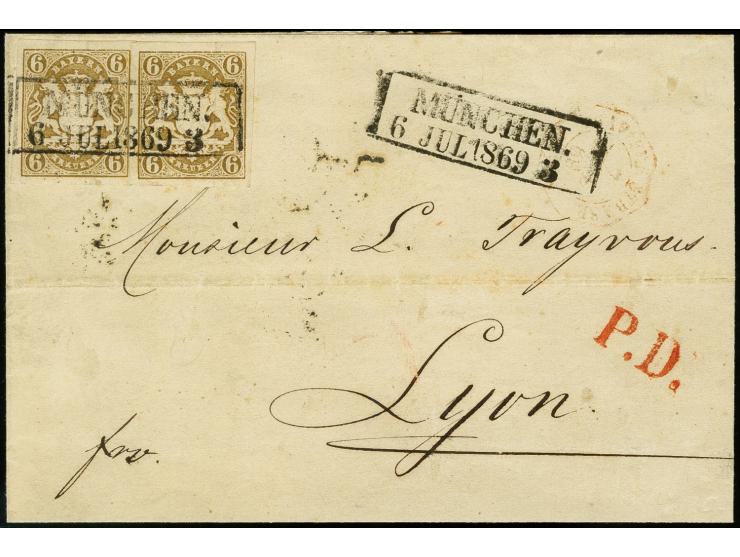 6 BAYERN 6
6 KREUZER 6
6 BAYERN 6
6 KREUZER 6
MÜNCHEN.
6 JUL 1869 3
MÜNCHEN.
6 JUL 1869 3
Monsieur L. Trayvous.
P.D.
Lyon.
fro.